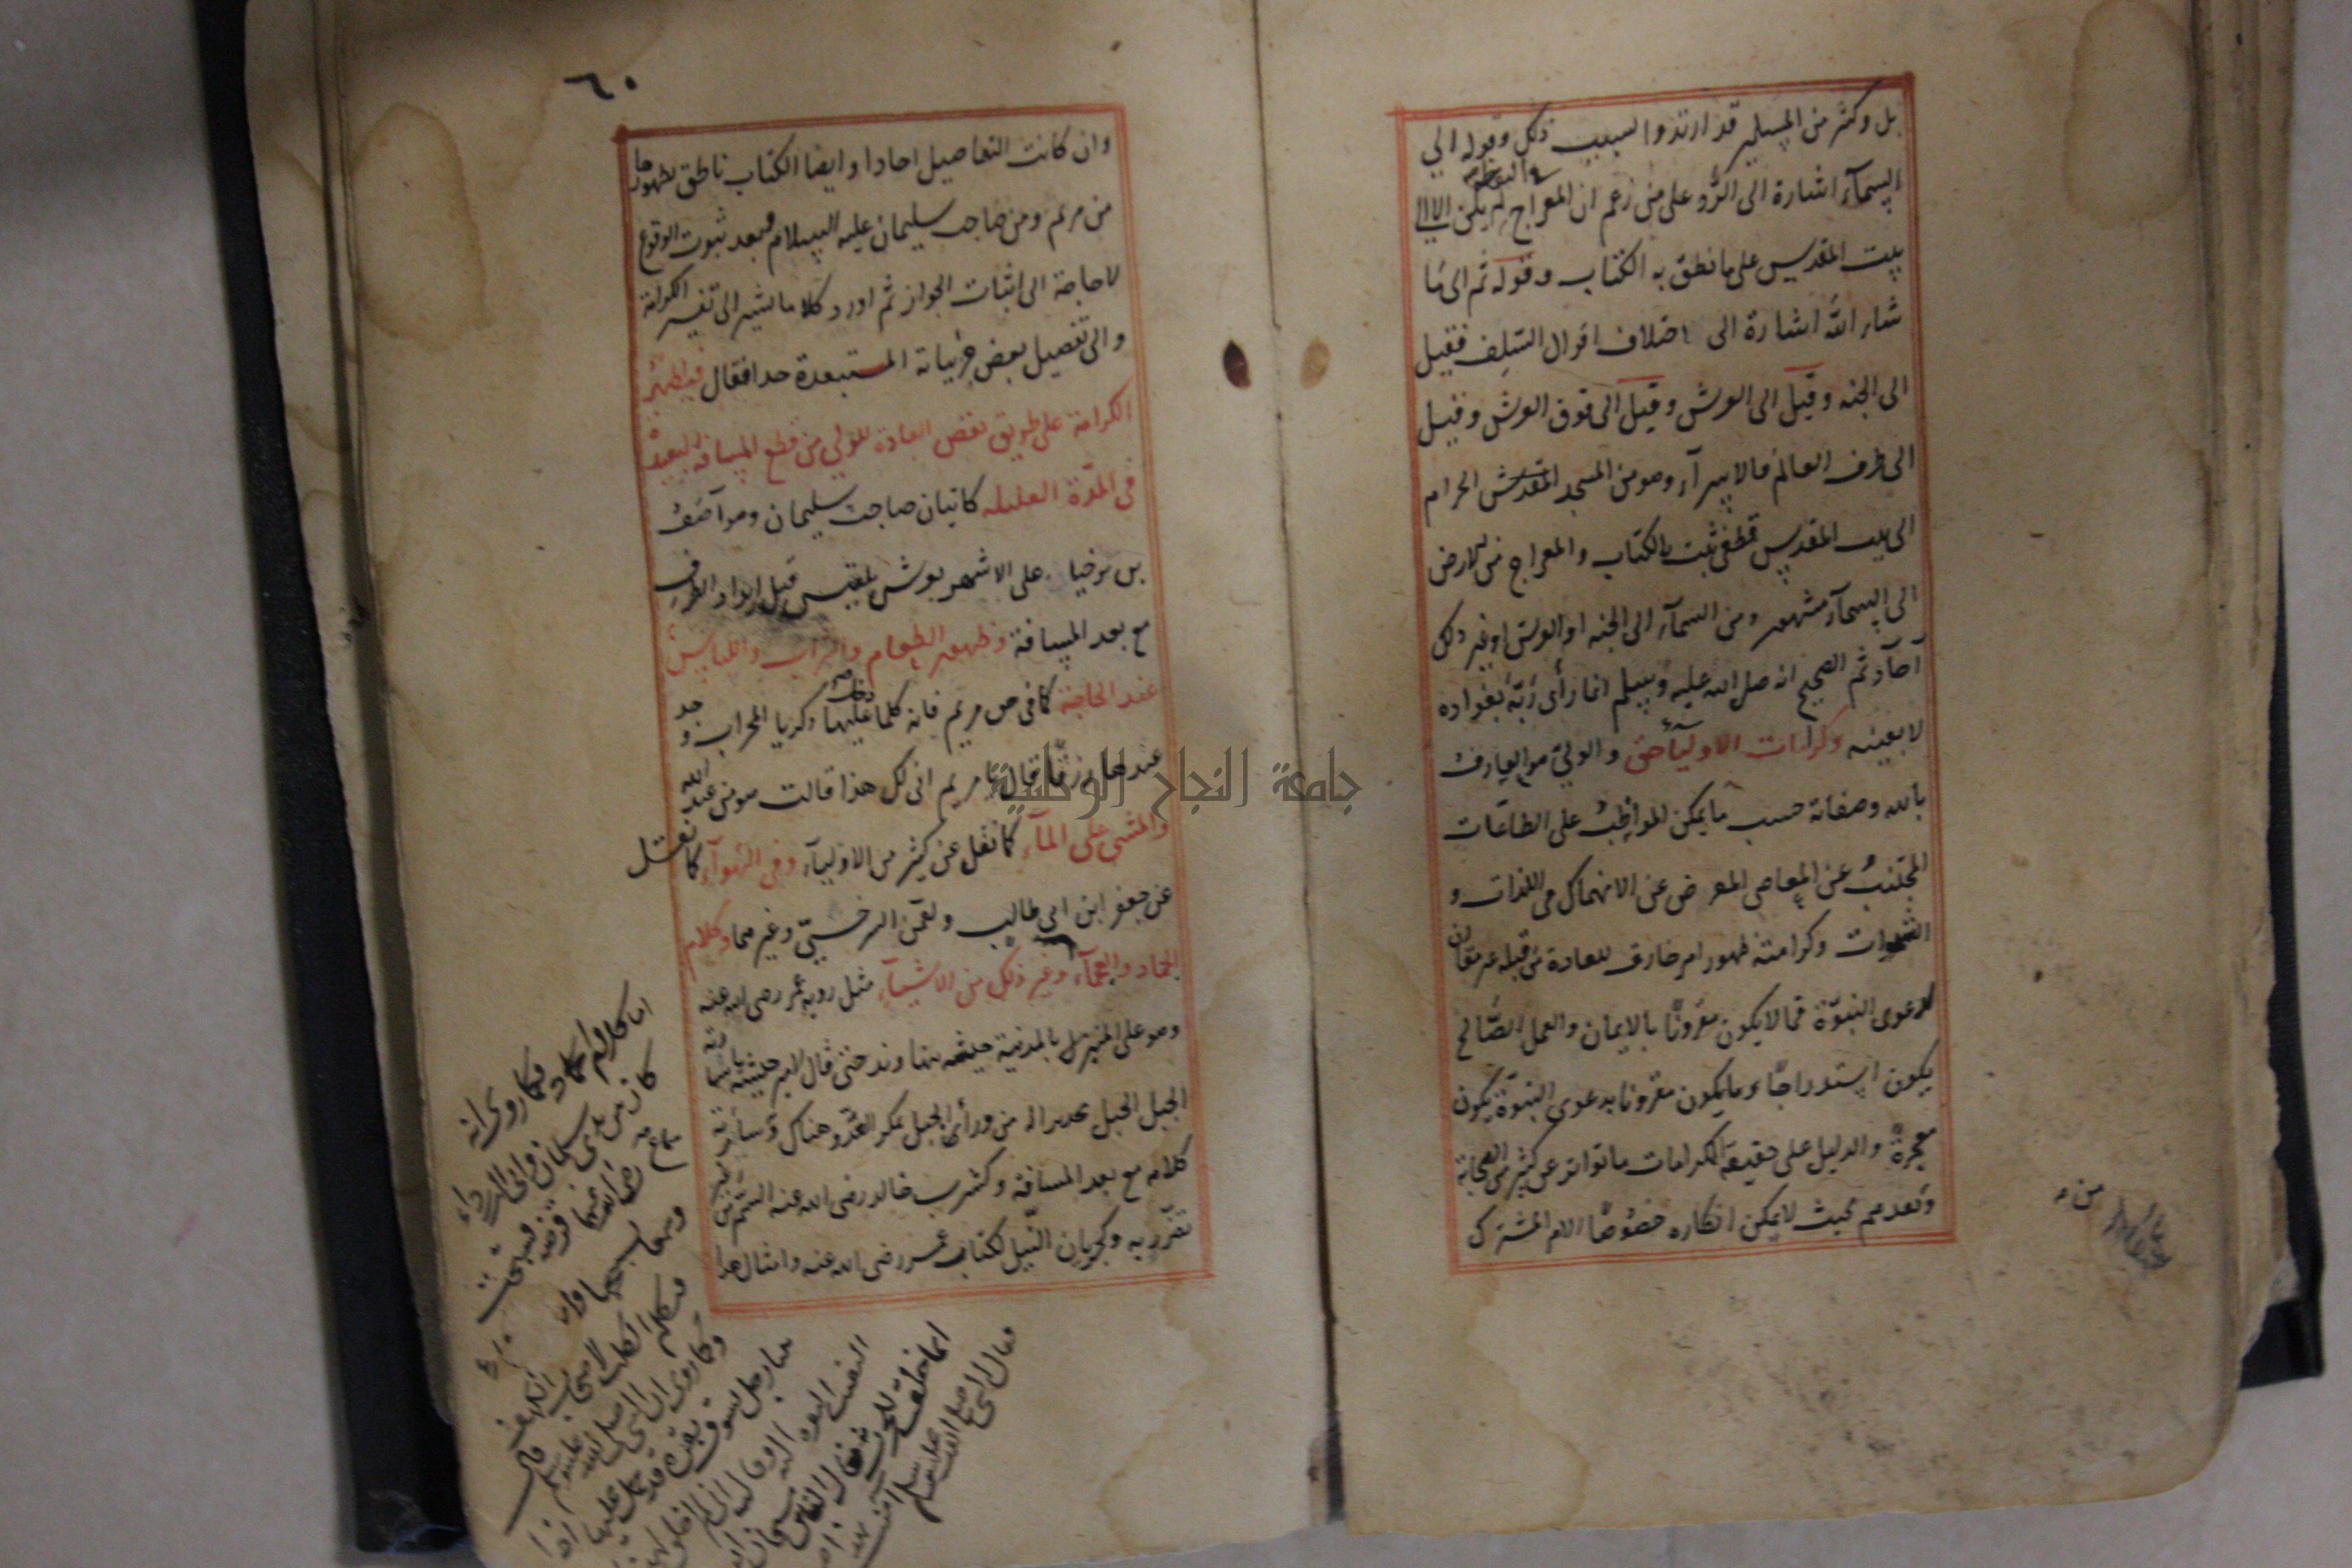 بل وكثير من المسلمين قد ارتدوا بسبب ذلك وقوله الى
السمآء اشارة الى الرد على من زعم ان المعراج في اليقظة لم يكن الا الى
بيت المقدس على ما نطق به الكتاب وقوله ثم الى ما
شاء الله اشارة الى اختلاف اقوال السلف فقيل
الى الجنه وقيل الى العرش وقيل الى فوق العرش وقيل
الى طرف العالم فالاسرآء وهو من المسجد الحرام
الى بيت المقدس قطعى ثبت بالكتاب والمعراج من الارض
الى السمآء مشهور ومن السمآء الى الجنه او العرش او غير ذلك
آحاد ثم الصحيح انه صلى الله عليه وسلم انما رأى ربه بفواده
لا بعينه وكرامات الاوليآء حق والولى هو العارف
بالله وصفاته حسب ما يمكن المواظب على الطاعات
المجتنب عن المعاصى المعرض عن الانهماك فى اللذات و
الشهوات وكرامته ظهور امر خارق للعادة من قبله غير مقارن
لدعوى النبوة فما لا يكون مقرونا بالايمان والعمل الصالح
يكون استدراجا وما يكون مقرونا بدعوى النبوة يكون
معجزة والدليل على حقيقة الكرامات ما تواتر عن كثير من الصحابة
وبعدهم بحيث لا يمكن انكاره خصوصا الامر المشترك
٦٠
وان كانت التفاصيل احادا وايضا الكتاب ناطق بظهورها
من مريم ومن صاحب سليمان عليه السلام فبعد ثبوت الوقوع
لا حاجة الى اثبات الجواز ثم اورد كلاما يشير الى تفسير الكرامة
والى تفصيل بعض جزئياته المستبعدة جدا فقال فيظهر
الكرامة على طريق نقض العادة للولى من قطع المسافه البعيدة
فى المدة القليله كاتيان صاحب سليمان وهو آصف
بن برخيا على الاشهر بعرش بلقيس قبل ارتداد الطرف
مع بعد المسافة وظهور الطعام والشراب واللباس
عند الحاجة كما فى حق مريم فانه كلما دخل عليها زكريا المحراب وجد
عندها رزقا قال يا مريم انى لك هذا قالت هو من عند الله
والمشى على المآء كما نقل عن كثير من الاوليآء وفى الهوآء كما نقل
عن جعفر ابن ابى طالب ولقمن السرخسى وغيرهما وكلام
الجماد والعجمآء وغير ذلك من الاشيآء مثل رويه عمر رضى الله عنه
وهو على المنبر بالمدينة جيشه بنهاوند حتى قال لامير جيشه يا سارية
الجبل الجبل تحذيرا له من ورآء الجبل لمكر العدو هناك وسماع سارية
كلامه مع بعد المسافة وكشرب خالد رضى الله عنه السم من غير
تضرر به وكجريان النيل بكتاب عمر رضى الله عنه وامثال هذا
اما كلام الجماد فكما روى انه
كان بين يدى سلمان وابى الدرداء
رضى الله عنهما قصعة فسبحت
وسمعا تسبيحها واما
فتكلم الكلب لاصحاب الكهف
وكما روى ان النبى صلى الله عليه وسلم قال
بينا رجل يسوق بقرة قد حمل عليها اذا
التفتت البقرة اليه وقالت انى لم اخلق لهذا
انما خلقت للحرث فقال الناس سبحان الله
فقال النبى صلى الله عليه وسلم آمنت
جامعة النجاح الوطنية